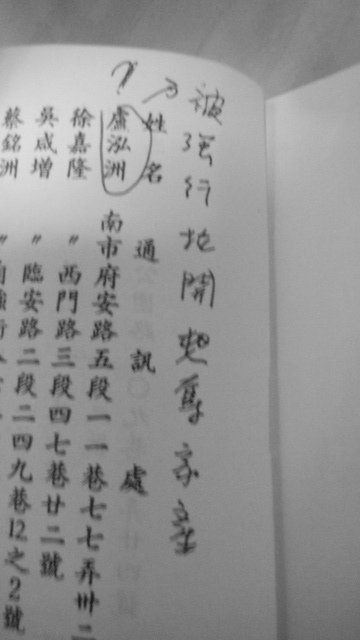 被強行地開奪家產
?
姓名 通訊處
盧泓洲 南市府安路五段一一巷七七弄卅二
徐嘉隆 〃 西門路三段四七巷廿二號
吳咸增 〃 臨安路二段二四九巷12之2號
蔡銘洲 〃